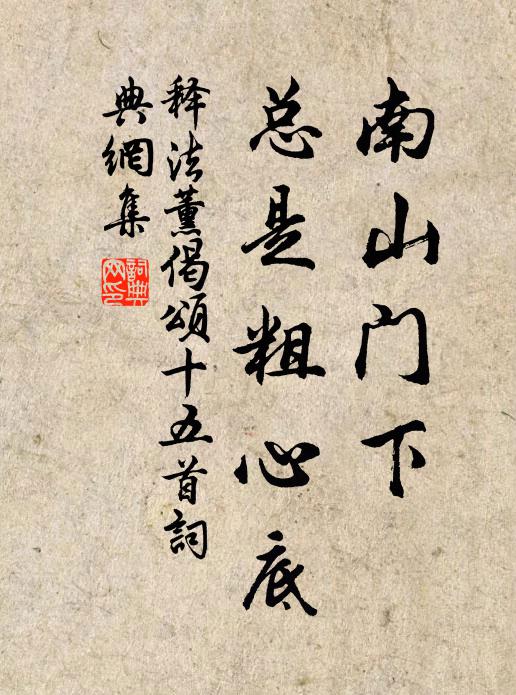 南山门下
总是粗心底
释法薰偈頌十五首詞
典網集
詞典网印